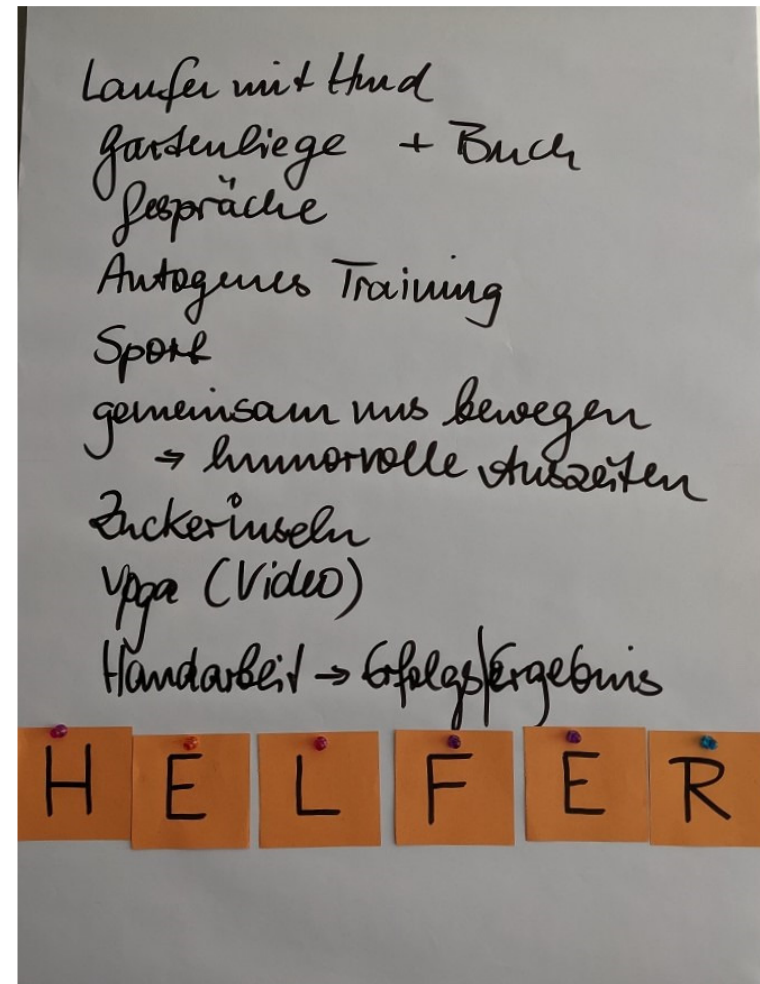 Laufen mit Hund
Gartenliege + Buch
Gespräche
Autogenes Training
Sport
gemeinsam uns bewegen
→ humorvolle Auszeiten
Zuckerinseln
Yoga (Video)
Handarbeit → Erfolgs/Ergebnis
HELFER